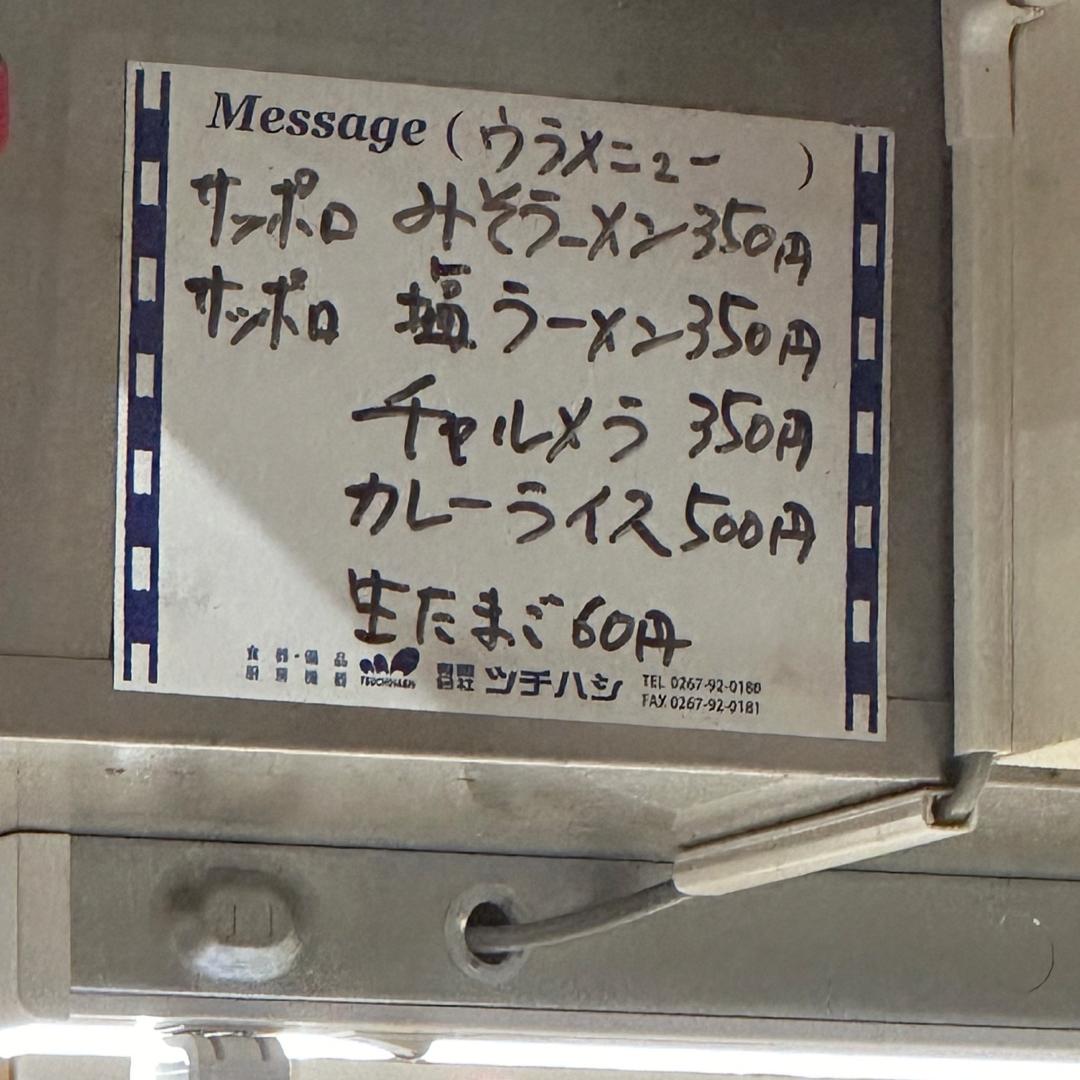 Message ( ウラメニュー )
サッポロ みそラーメン 350円
サッポロ 塩ラーメン 350円
チャルメラ 350円
カレーライス 500円
生たまご 60円
食料・備品
厨房機器
有限会社 ツチハシ
TEL 0267-92-0180
FAX 0267-92-0181